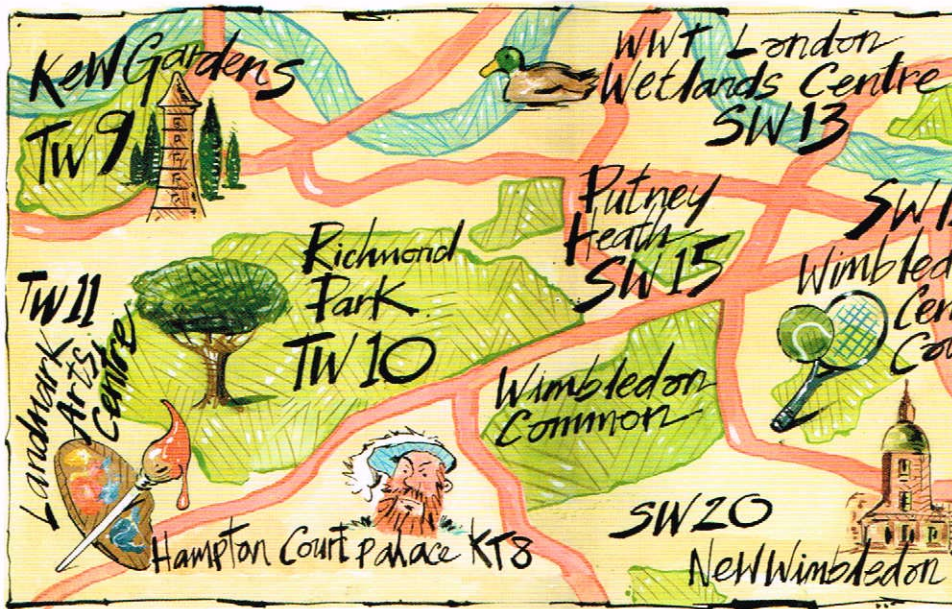 Kew Gardens
TW9
WWT London
Wetlands Centre
SW13
Putney
Heath
SW15
Richmond
Park
TW10
TW11
Landmark
Arts
Centre
Wimbledon
Common
Hampton Court palace KT8
SW20
New Wimbledon